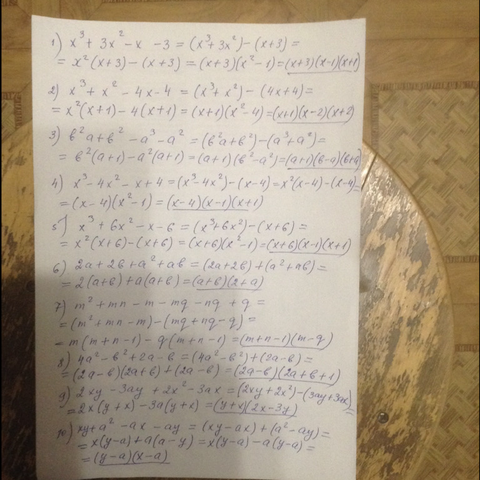 1) x³ + 3x² - x - 3 = (x³ + 3x²) - (x+3) =
= x²(x+3) - (x+3) = (x+3)(x²-1) = (x+3)(x-1)(x+1)
2) x³ + x² - 4x - 4 = (x³ + x²) - (4x+4) =
= x²(x+1) - 4(x+1) = (x+1)(x²-4) = (x+1)(x-2)(x+2)
3) b²a + b² - a³ - a² = (b²a + b²) - (a³ + a²) =
= b²(a+1) - a²(a+1) = (a+1)(b²-a²) = (a+1)(b-a)(b+a)
4) x³ - 4x² - x + 4 = (x³ - 4x²) - (x-4) = x²(x-4) - (x-4) =
= (x-4)(x²-1) = (x-4)(x-1)(x+1)
5) x³ + 6x² - x - 6 = (x³ + 6x²) - (x+6) =
= x²(x+6) - (x+6) = (x+6)(x²-1) = (x+6)(x-1)(x+1)
6) 2a + 2b + a² + ab = (2a + 2b) + (a² + ab) =
= 2(a+b) + a(a+b) = (a+b)(2+a)
7) m² + mn - m - mq - nq + q =
= (m² + mn - m) - (mq + nq - q) =
= m(m+n-1) - q(m+n-1) = (m+n-1)(m-q)
8) 4a² - b² + 2a - b = (4a² - b²) + (2a - b) =
= (2a-b)(2a+b) + (2a-b) = (2a-b)(2a+b+1)
9) 2xy - 3ay + 2x² - 3ax = (2xy + 2x²) - (3ay + 3ax) =
= 2x(y+x) - 3a(y+x) = (y+x)(2x-3y)
10) xy + a² - ax - ay = (xy - ax) + (a² - ay) =
= x(y-a) + a(a-y) = x(y-a) - a(y-a) =
= (y-a)(x-a)